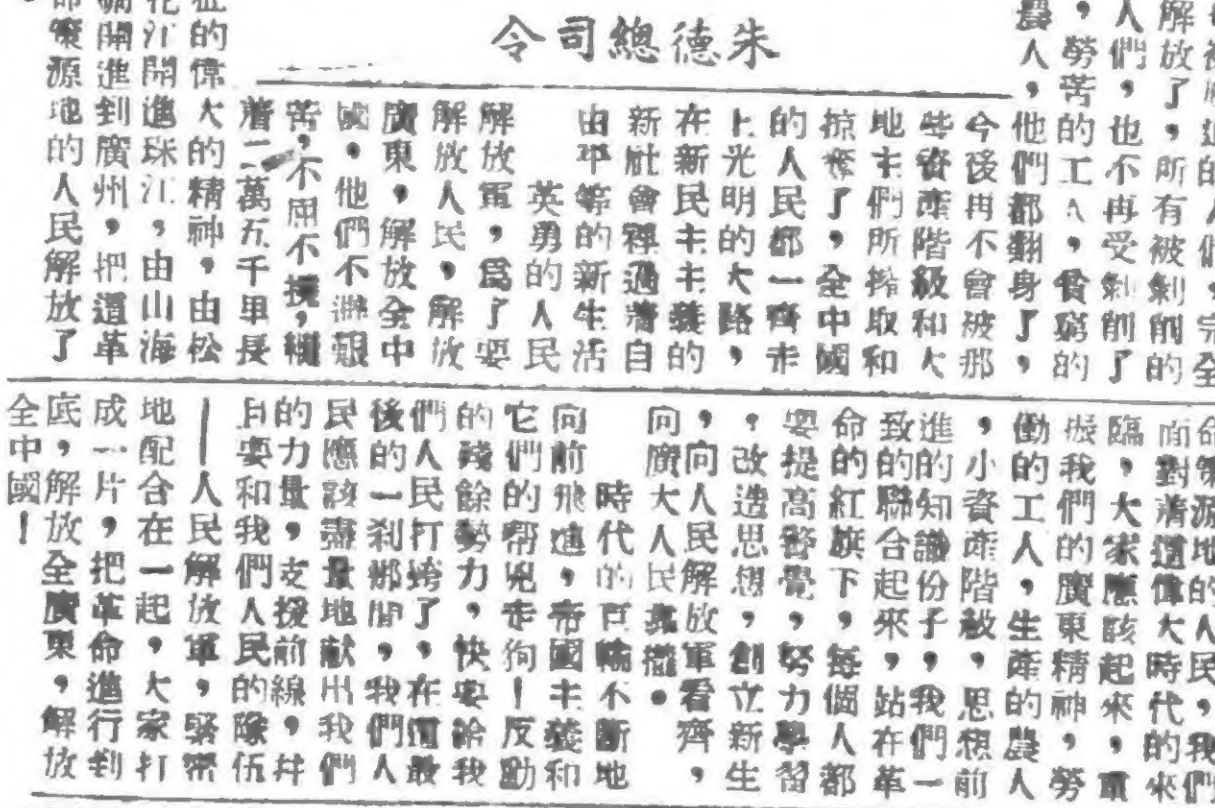 朱德總司令
被壓迫的人們,完全
解放了,所有被剝削的
人們,也不再受剝削了
,勞苦的工人,貧窮的
農人,他們都翻身了,
今後再不會被那
些資產階級和大
地主們所搾取和
掠奪了,全中國
的人民都一齊走
上光明的大路,
在新民主主義的
新社會裡過着自
由平等的新生活
英勇的人民
解放軍,爲了要
解放人民,解放
廣東,解放全中
國,他們不避艱
苦,不屈不撓,繼
着二萬五千里長
征的偉大的精神,由松
花江開進珠江,由山海
關開進到廣州,把這革
命策源地的人民解放了
命策源地的人民,我們
面對着這偉大時代的來
臨,大家應該起來,重
振我們的廣東精神,勞
働的工人,生產的農人
,小資產階級,思想前
進的知識份子,我們一
致的聯合起來,站在革
命的紅旗下,每個人都
要提高警覺,努力學習
,改造思想,創立新生
,向人民解放軍看齊,
向廣大人民靠攏。
時代的巨輪不斷地
向前飛進,帝國主義和
它們的幫兇走狗!反動
的殘餘勢力,快要給我
們人民打垮了,在這最
後的一刹那間,我們人
民應該盡量地献出我們
的力量,支援前線,幷
且要和我們人民的隊伍
—人民解放軍,緊密
地配合在一起,大家打
成一片,把革命進行到
底,解放全廣東,解放
全中國!